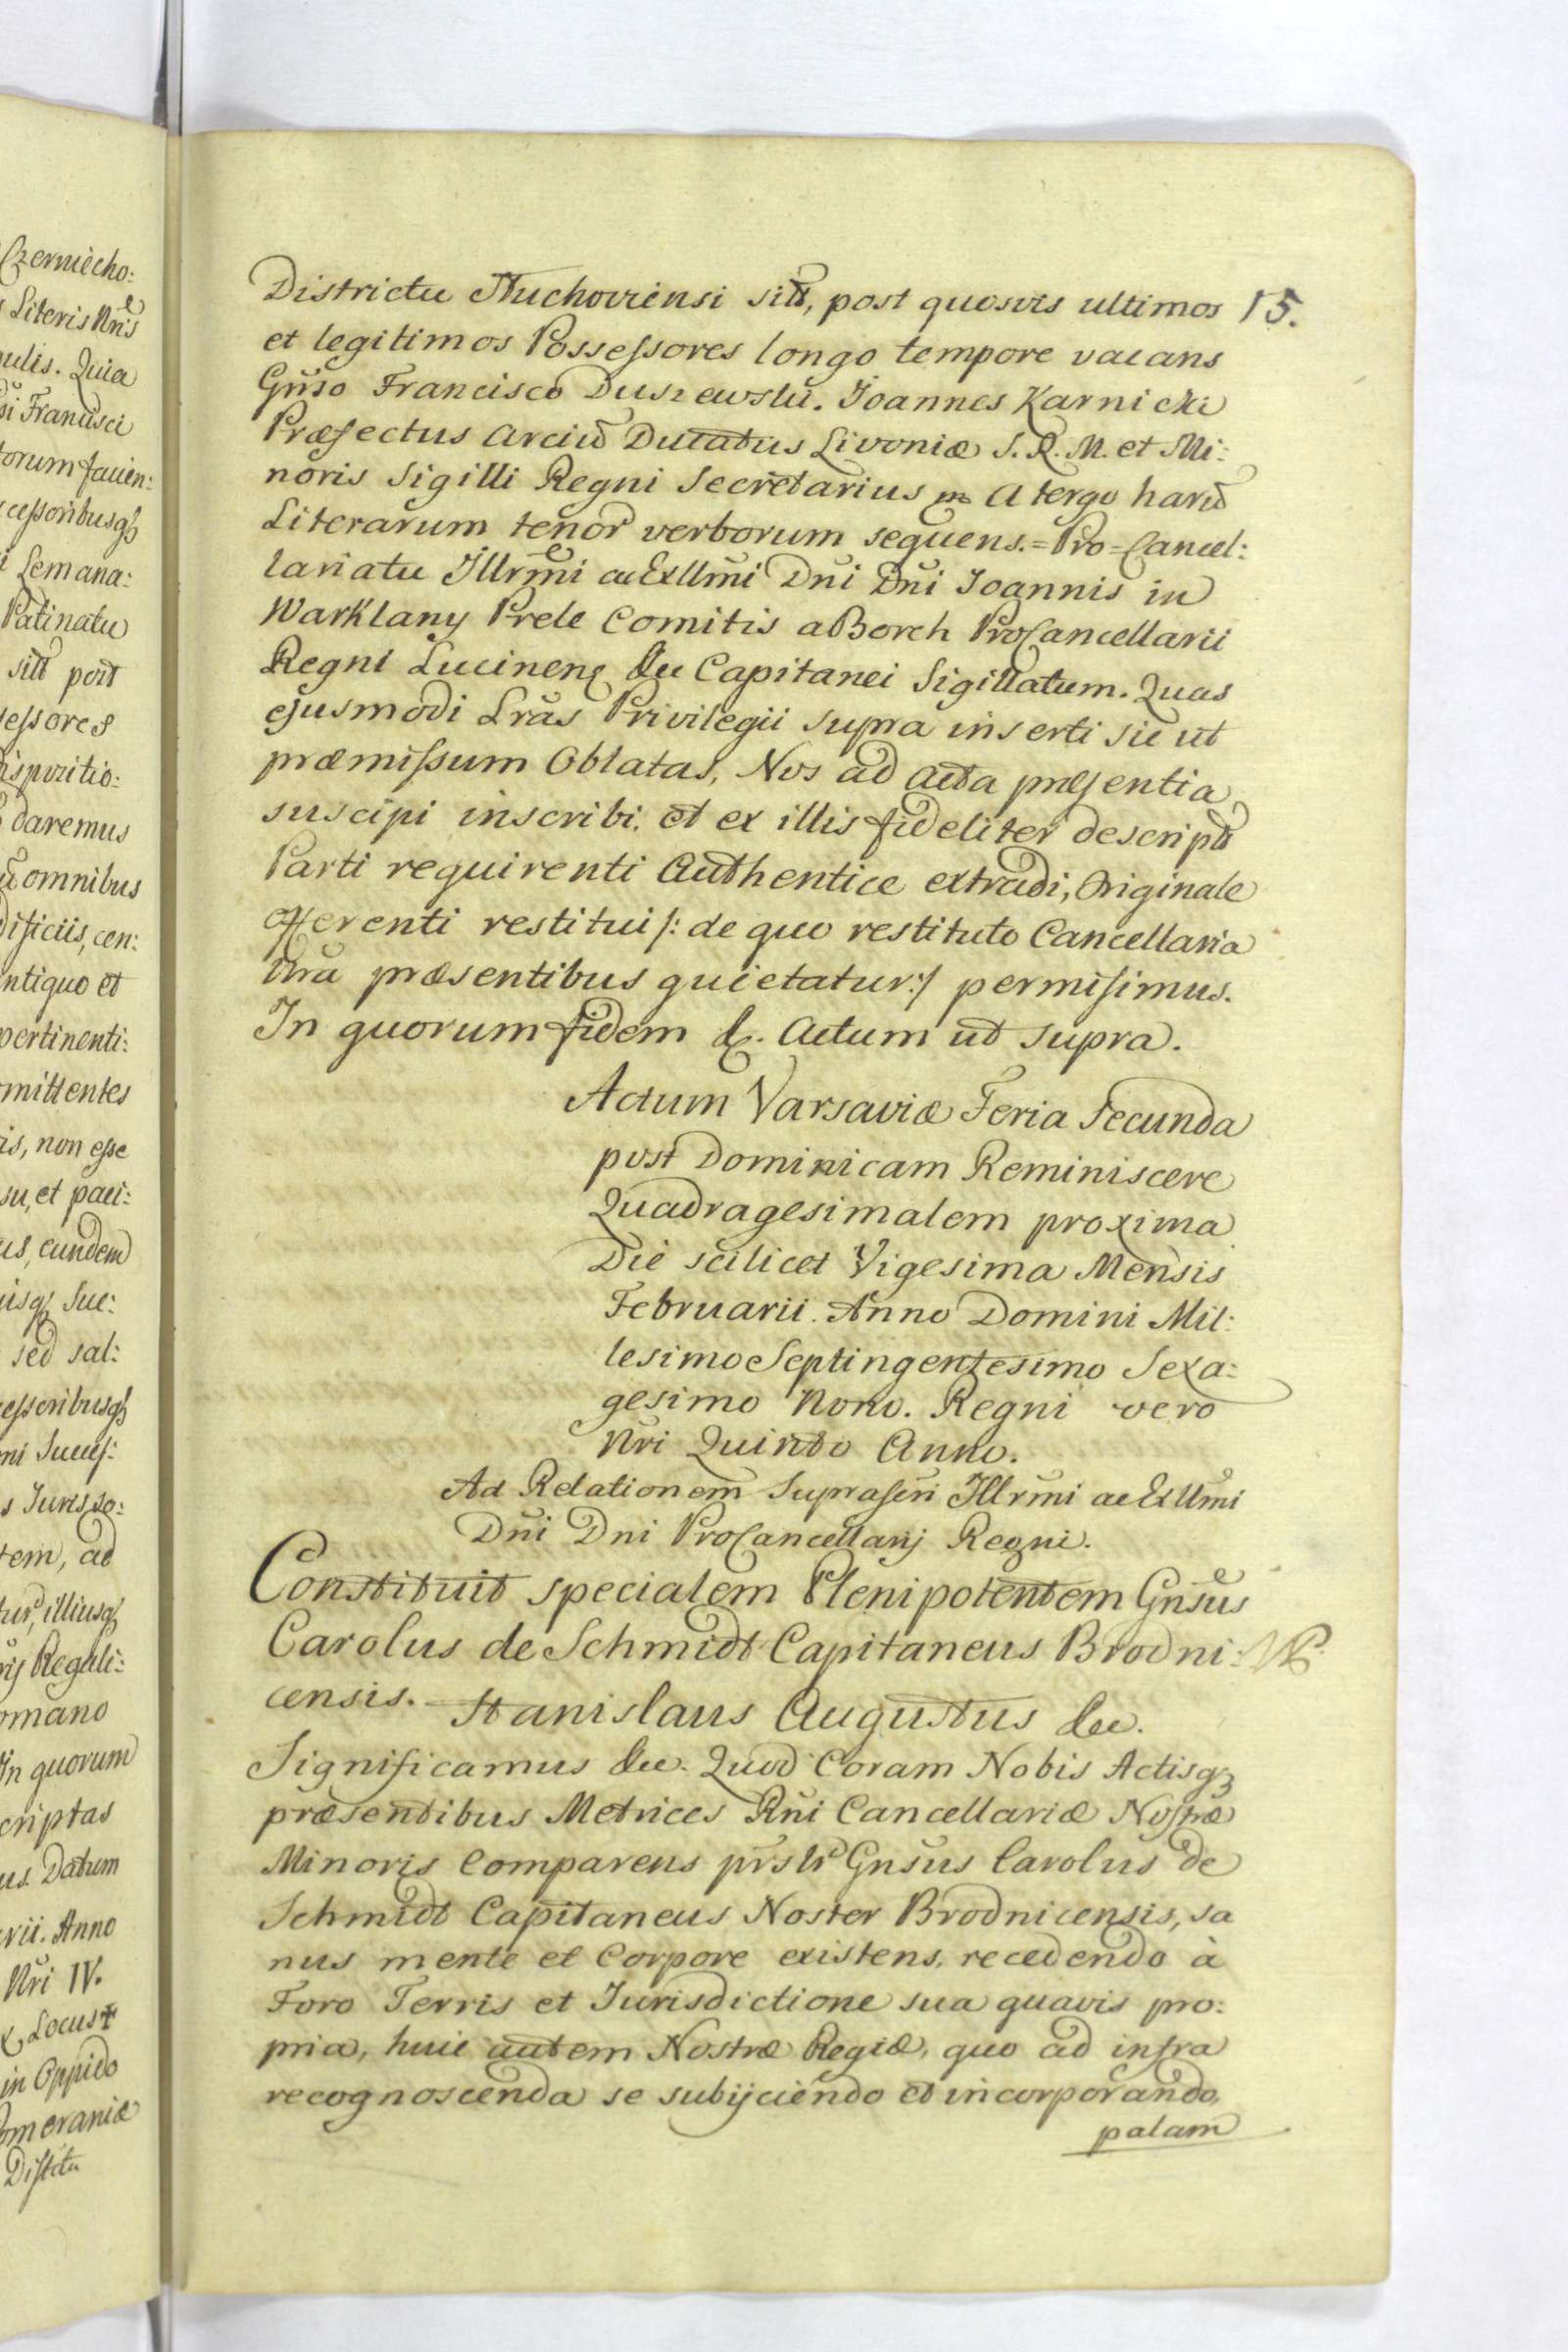 Czerniecho:
Literis Nris
ulis. Quia
si Francisci
torum favien:
cessoribusq3
Lemana:
Patinatu
sitt post
sessores
dispozitio:
daremus
omnibus
dificiis, cen:
ntiquo et
pertinenti:
mittentes
is, non esse
su, et paci:
us, eundem
isq3 Suc:
sed sal:
cessoribusq3
ni Succes:
s Juris so:
tem, ad
tur, illiusq3
rij Regali:
omano
In quorum
criptas
us. Datum
rii. Anno
Nri IV.
Locus +
in Oppido
omeraniæ
Distctu
15.
Districtu Tuchoviensi sitt, post quosvis ultimos
et legitimos Possessores longo tempore vacans
Gnso Francisco Duszewski. Joannes Karnicki
Præfectus Arciu Ducatus Livoniæ S. R. M. et Mi:
noris Sigilli Regni Secretarius m A tergo haru
Literarum tenor verborum sequens.=Pro=Cancel:
lariatu Illrmi ac Exllmi Dni Dni Joannis in
Warklany Prele Comitis a Borch ProCancellarii
Regni Lucinens &c Capitanei Sigillatum. Quas
ejusmodi Lras Privilegii supra inserti sic ut
præmissum Oblatas, Nos ad acta præsentia
suscipi inscribi. et ex illis fideliter descript
Parti requirenti Authentice extradi, Originale
offerenti restitui /: de quo restituto Cancellaria
Nra præsentibus quietatur :/ permisimus.
In quorum fidem &. Actum ut supra.
Actum Varsaviæ Feria Secunda
post Dominicam Reminiscere
Quadragesimalem proxima
Die scilicet Vigesima Mensis
Februarii. Anno Domini Mil:
lesimo Septingentesimo Sexa:
gesimo Nono. Regni vero
Nri Quinto Anno.
Ad Relationem Suprascri Illrmi ac Exllmi
Dni Dni ProCancellarij Regni.
Constituit specialem Plenipotentem Gnsus
Carolus de Schmidt Capitaneus Brodni:
censis. Stanislaus Augustus &c.
Significamus &c. Quod Coram Nobis Actisq3
præsentibus Metrices Rni Cancellariæ Nostræ
Minoris Comparens prslr Gnsus Carolus de
Schmidt Capitaneus Noster Brodnicensis, sa
nus mente et Corpore existens. recedendo à
Foro Terris et Jurisdictione sua quavis pro:
pria, huic autem Nostræ Regiæ, quo ad infra
recognoscenda se subijciendo et incorporando,
palam